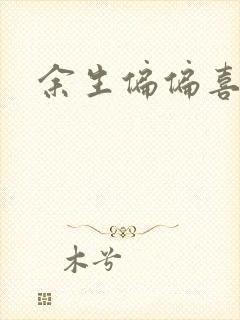 余生偏偏喜
木兮